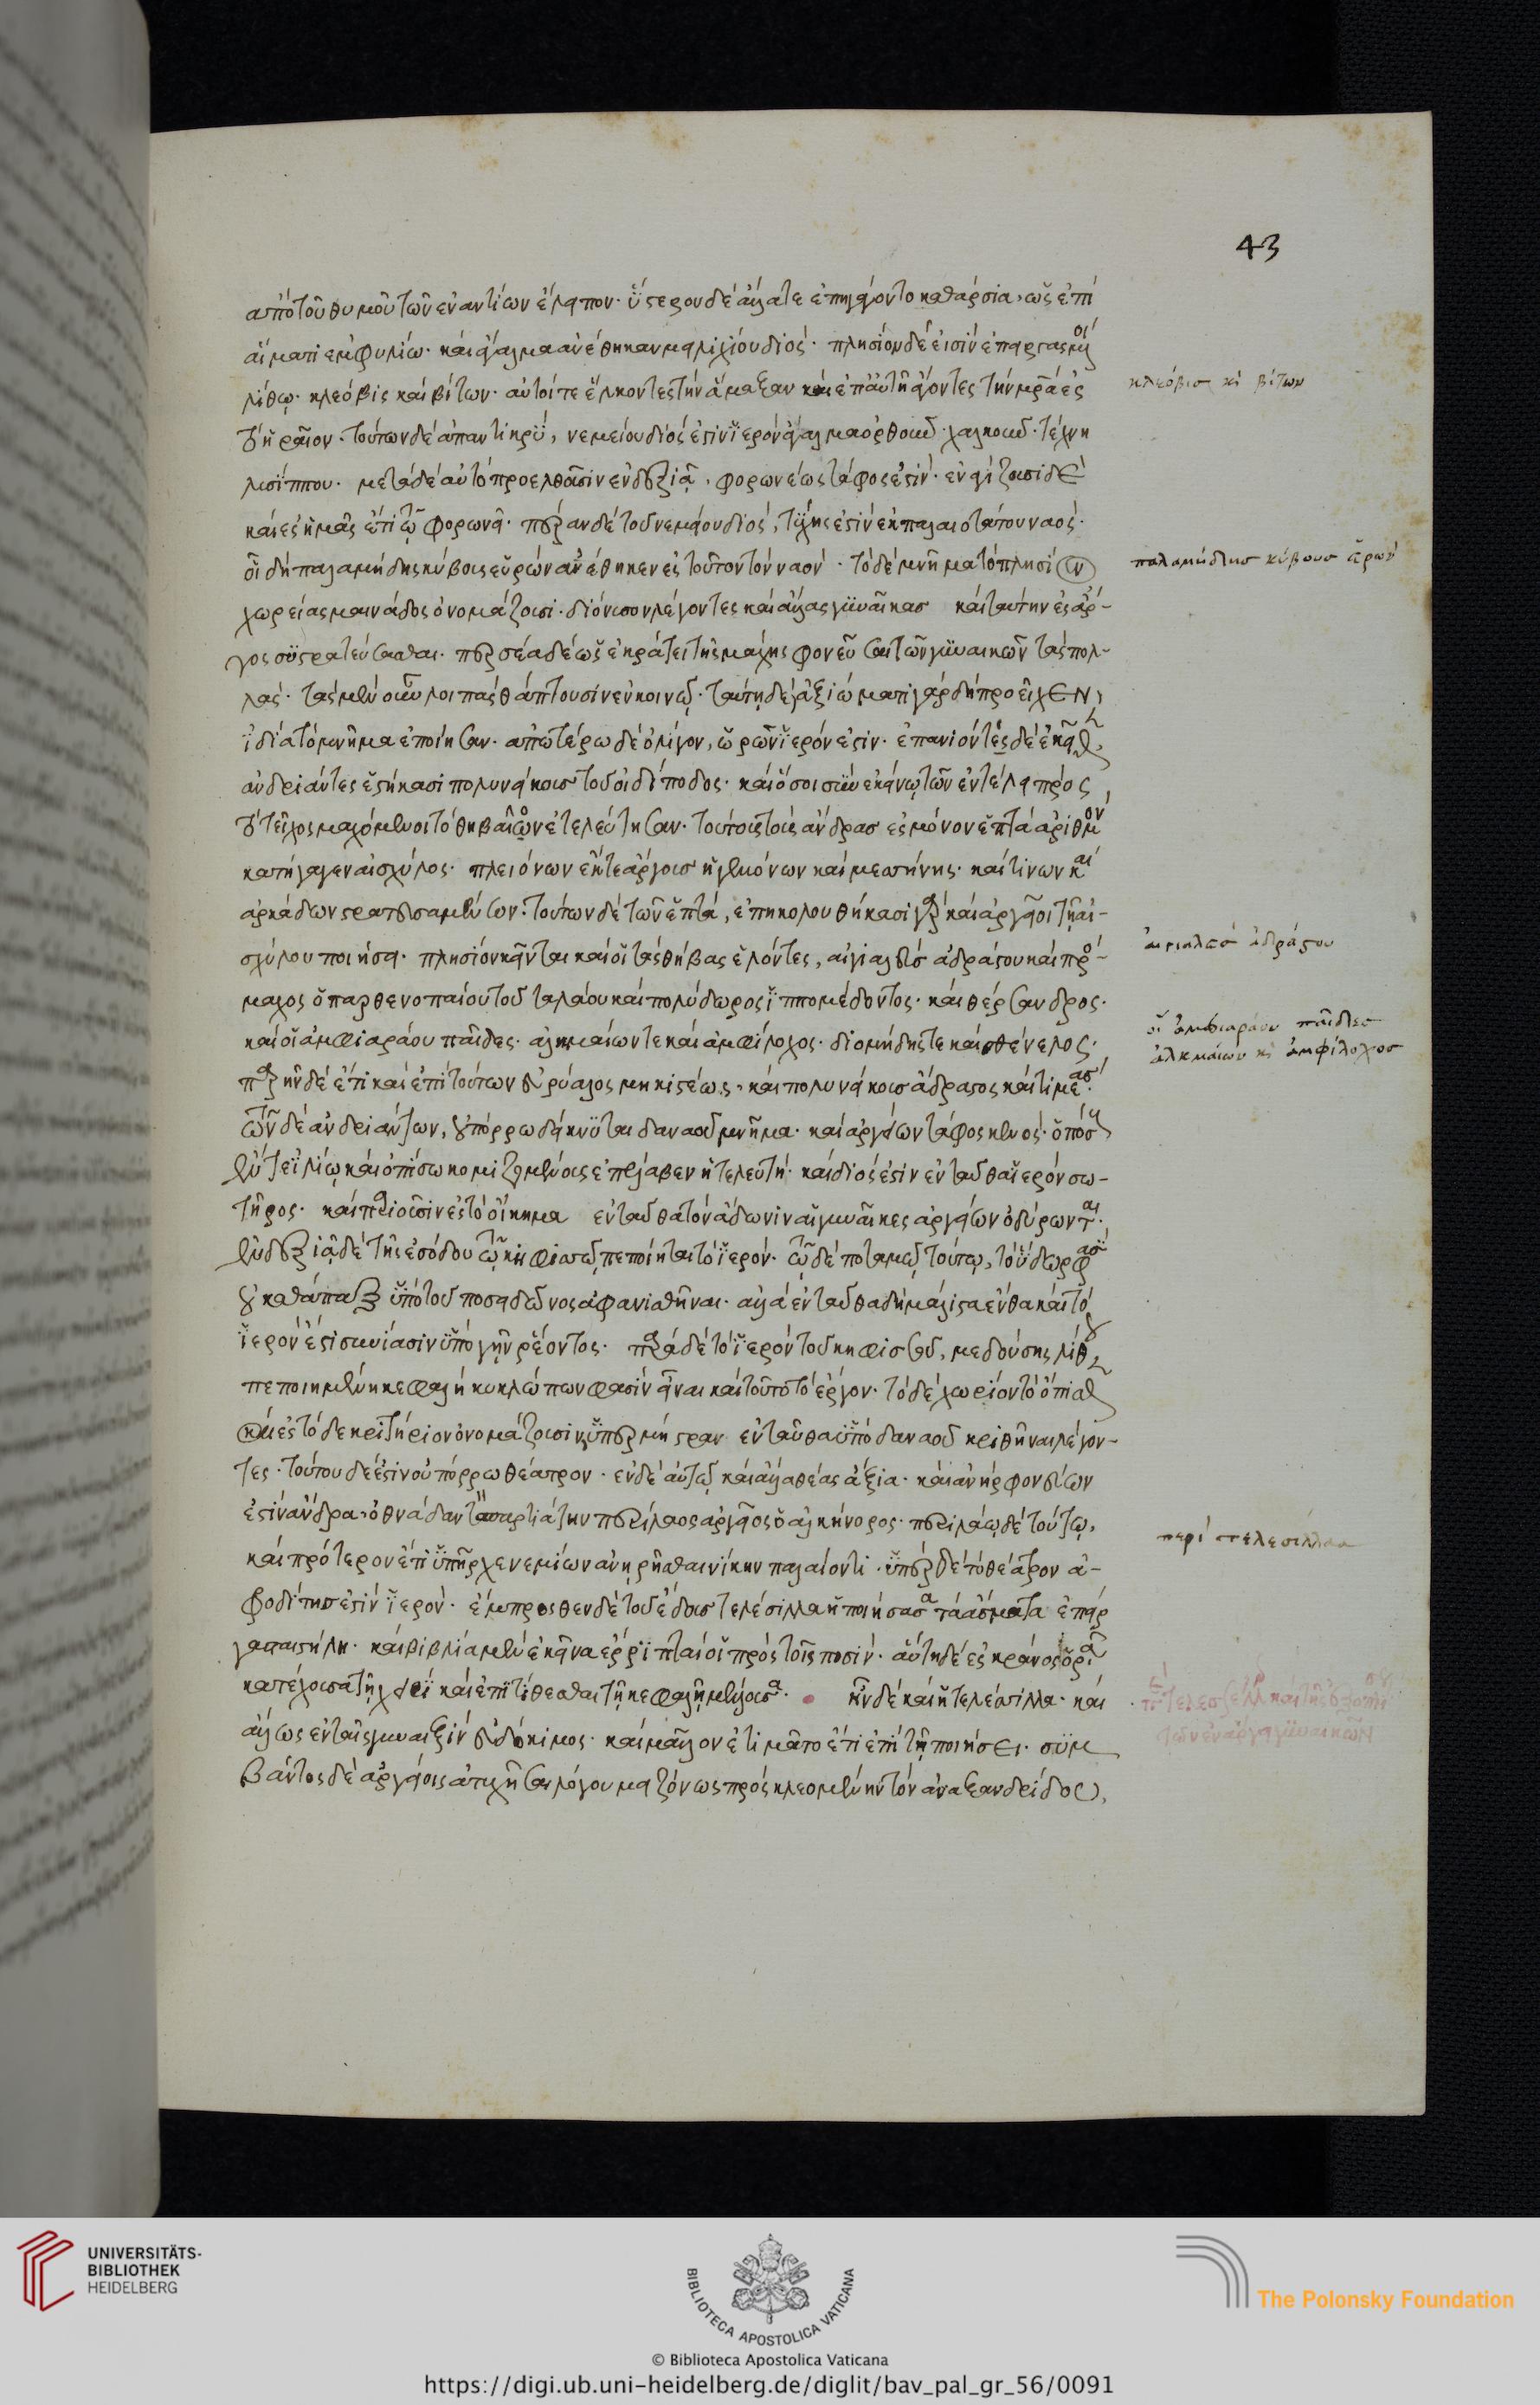 43
ἀπὸ τοῦ θυμοῦ τῶν ἐναντίων ἔλειπον· ὕστερον δὲ ἄλλα τε ἐπηγάγοντο καθάρσια, ὡς ἐπὶ
αἵματι ἐμφυλίω· καὶ ἄγαλμα ἀνέθηκαν μειλιχίου διός· πλησίον δέ εἰσιν ἐπειργασμένοι
λίθω· κλέοβις καὶ βίτων· αὐτοί τε ἕλκοντες τὴν ἅμαξαν καὶ ἐπ' αὐτῆ ἄγοντες τὴν μρα ἐς
τὸ ἡραῖον· τούτων δὲ ἀπαντικρὺ, νεμείου διός ἐστιν ἱερὸν ἄγαλμα ὀρθοῦ χαλκοῦ· τέχνη
λυσίππου· μετὰ δὲ αὐτὸ προελθοῦσιν ἐν δεξιᾶ, φορωνέως τάφος ἐστίν· ἐναγίζουσι δὲ
καὶ ἐς ἡμᾶς ἔτι τῶ φορωνεῖ· πέραν δὲ τοῦ νεμείου διός, τύχης ἐστὶν ἐκ παλαιοτάτου ναός·
οἱ δὴ παλαμήδης κύβους εὑρὼν ἀνέθηκεν εἰς τοῦτον τὸν ναόν· τὸ δὲ μνῆμα τὸ πλησίον
χωρείας μαινάδος ὀνομάζουσι· διόνυσον λέγοντες καὶ ἄλλας γυναῖκας καὶ ταύτην ἐς ἄρ-
γος συστρατεύσασθαι· περσέα δὲ ὡς ἐκράτει τῆς μάχης φονεῦσαι τῶν γυναικῶν τὰς πολ-
λάς· τὰς μὲν οὖν λοιπὰς θάπτουσιν ἐν κοινῶ· ταύτη δὲ ἀξιώματι γὰρ δὴ προεῖχεν,
ἰδία τὸ μνῆμα ἐποίησαν· ἀπωτέρω δὲ ὀλίγον, ὡρῶν ἱερόν ἐστιν· ἐπανιόντες δὲ ἐκεῖθεν
ἀνδριάντες ἑστήκασι πολυνείκους τοῦ οἰδίποδος· καὶ ὅσοι σὺν ἐκείνω τῶν ἐν τέλει πρὸς
τὸ τεῖχος μαχόμενοι τὸ θηβαίων ἐτελεύτησαν· τούτους τοὺς ἄνδρας ἐς μόνον ἑπτὰ ἀριθμὸν
κατήγαγεν αἰσχύλος· πλειόνων ἔκ τε ἄργους ἡγεμόνων καὶ μεσσήνης· καί τινων καὶ
ἀρκάδων στρατευσαμένων· τούτων δὲ τῶν ἑπτὰ, ἐπηκολουθήκασι γὰρ καὶ ἀργεῖοι τῆ αἰ-
σχύλου ποιήσει· πλησίον κεῖνται καὶ οἱ τὰς θήβας ἑλόντες, αἰγιαλεὺς ἀδράστου καὶ πρό-
μαχος ὁ παρθενοπαίου τοῦ ταλάου καὶ πολύδωρος ἱππομέδοντος· καὶ θέρσανδρος·
καὶ οἱ ἀμφιαράου παῖδες· ἀλκμαίων τε καὶ ἀμφίλοχος· διομήδης τε καὶ σθένελος·
παρῆν δὲ ἔτι καὶ ἐπὶ τούτων εὐρύαλος μηκιστέως, καὶ πολυνείκους ἄδραστος καὶ τιμέας·
τῶν δὲ ἀνδριάντων, οὐ πόρρω δείκνυται δαναοῦ μνῆμα· καὶ ἀργείων τάφος κενός· ὁπόσους
ἔν τε ἰλίω καὶ ὀπίσω κομιζομένους ἐπέλαβεν ἡ τελευτή· καὶ διός ἐστιν ἐνταῦθα ἱερὸν σω-
τῆρος· καὶ παριοῦσίν ἐς τὸ οἴκημα ἐνταῦθα τὸν ἄδωνιν αἱ γυναῖκες ἀργείων ὀδύρονται·
ἐν δεξιᾶ δὲ τῆς ἐσόδου τῶ κηφισῶ πεποίηται τὸ ἱερόν· τῶ δὲ ποταμῶ τούτω, τὸ ὕδωρ φασὶν
οὐ καθάπαξ ὑπὸ τοῦ ποσειδῶνος ἀφανισθῆναι· ἀλλὰ ἐνταῦθα δὴ μάλιστα ἔνθα καὶ τὸ
ἱερόν ἐστι συνίασιν ὑπὸ γῆν ῥέοντος· παρὰ δὲ τὸ ἱερὸν τοῦ κηφισοῦ, μεδούσης λίθου
πεποιημένη κεφαλή κυκλώπων φασὶν εἶναι καὶ τοῦτο τὸ ἔργον· τὸ δὲ χωρίον τὸ ὄπισθεν
καὶ ἐς τόδε κριτήριον ὀνομάζουσιν ὑπερμήστραν ἐνταῦθα ὑπὸ δαναοῦ κριθῆναι λέγον-
τες· τούτου δέ ἐστιν οὐ πόρρω θέατρον· ἐν δὲ αὐτῶ καὶ ἄλλα θέας ἄξια· καὶ ἀνὴρ φονεύων
ἐστὶν ἄνδρα, ὀθρυάδαν τὸν σπαρτιάτην περίλαος ἀργεῖος ὁ ἀλκήνορος· περιλάω δὲ τούτω,
καὶ πρότερον ἔτι ὑπῆρχε νεμείων ἀνῃρῆσθαι νίκην παλαίοντι· ὑπὲρ δὲ τὸ θέατρον ἀ-
φροδίτης ἐστὶν ἱερόν· ἔμπροσθεν δὲ τοῦ ἕδους τελέσιλλα ἡ ποιήσασα τὰ ἄσματα ἐπείρ
γασται στήλη· καὶ βιβλία μὲν ἐκεῖνα ἔρριπταί οἱ πρὸς τοῖς ποσίν· αὕτη δὲ ἐς κράνος ὁρᾶ
κατέχουσα τῆ χειρὶ καὶ ἐπιτίθεσθαι τῆ κεφαλῆ μέλλουσα· ἦν δὲ καὶ ἡ τελέσιλλα· καὶ
ἄλλως ἐν ταῖς γυναιξὶν εὐδόκιμος· καὶ μᾶλλον ἐτιμᾶτο ἔτι ἐπὶ τῆ ποιήσει· συμ
βάντος δὲ ἀργείοις ἀτυχῆσαι λόγου μειζόνως πρὸς κλεομένην τὸν ἀναξανδρίδου,
κλέοβισ κὶ βίτων
παλαμήδησ κύβουσ εὑρών
αἰγιαλεὺσ ἀδράστου
οἱ ἀμφιαράου παῖδεσ
ἀλκμαίων κὶ ἀμφίλοχοσ
περὶ τελεσίλλασ
UNIVERSITÄTS-
BIBLIOTHEK
HEIDELBERG
BIBLIOTECA APOSTOLICA VATICANA
The Polonsky Foundation
© Biblioteca Apostolica Vaticana
https://digi.ub.uni-heidelberg.de/diglit/bav_pal_gr_56/0091